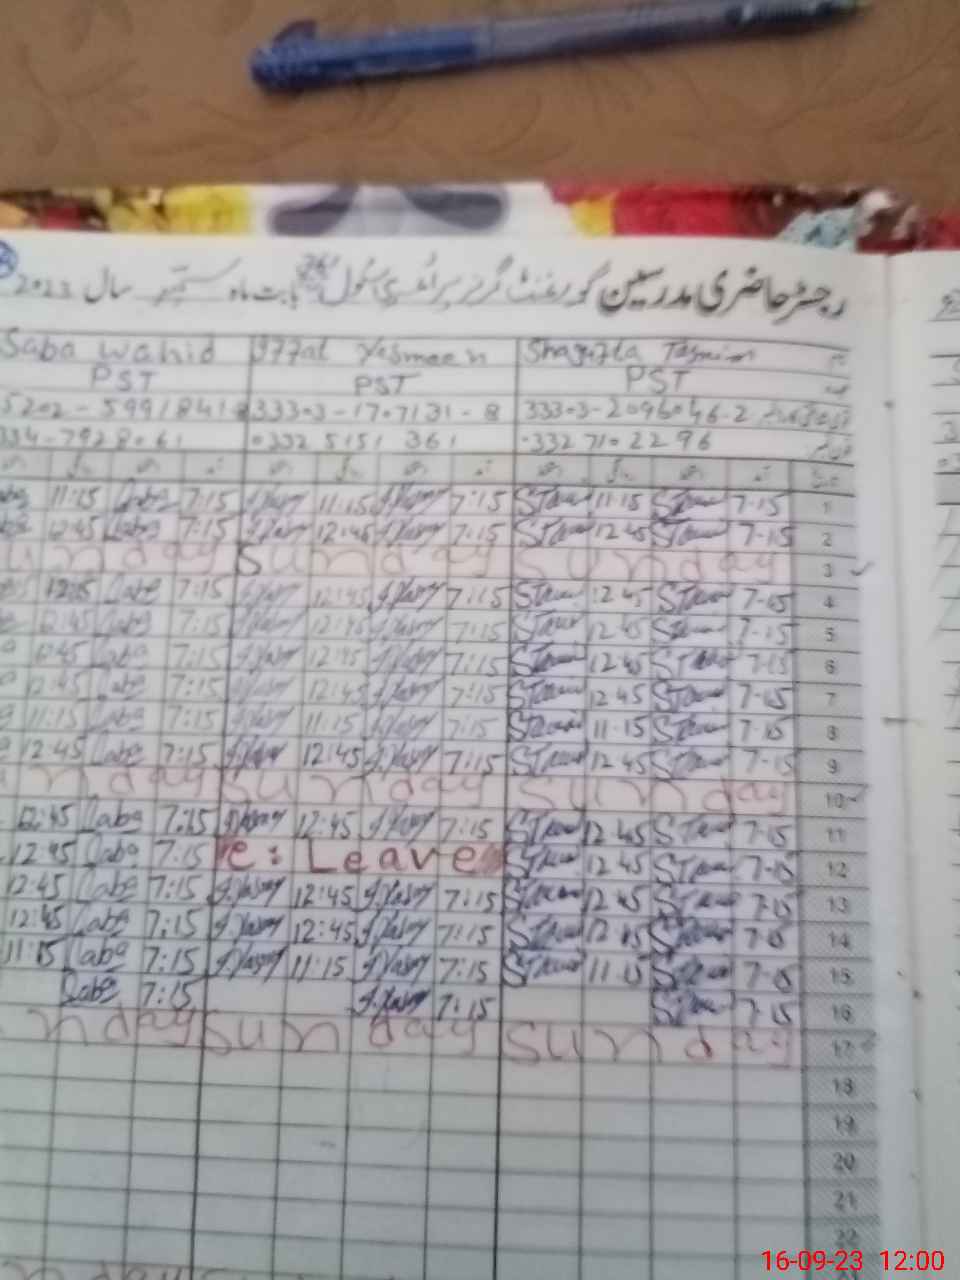 رجسٹر حاضری مدرسین گورنمنٹ گرلز پرائمری سکول بابت ماہ ستمبر سال 2023
Saba Wahid Iffat Yasmeen Shagufta Tasmim
PST PST PST
5202-5991841 33303-1707131-8 33303-2096046-2
334-7928061 0332 5151 361 0332 710 22 96
11:15 Saba 7:15 I.Yasm 11:15 I.Yasm 7:15 STasm 11-15 STasm 7-15 1
12:45 Saba 7:15 I.Yasm 12:45 I.Yasm 7:15 STasm 12 45 STasm 7-15 2
unday Sunday Sunday 3
12:45 Saba 7:15 I.Yasm 12:45 I.Yasm 7:15 STasm 12 45 STasm 7-15 4
12:45 Saba 7:15 I.Yasm 12:45 I.Yasm 7:15 STasm 12 45 STasm 7-15 5
12:45 Saba 7:15 I.Yasm 12:45 I.Yasm 7:15 STasm 12 45 STasm 7-15 6
12:45 Saba 7:15 I.Yasm 12:45 I.Yasm 7:15 STasm 12 45 STasm 7-15 7
11:15 Saba 7:15 I.Yasm 11:15 I.Yasm 7:15 STasm 11-15 STasm 7-15 8
12:45 Saba 7:15 I.Yasm 12:45 I.Yasm 7:15 STasm 12 45 STasm 7-15 9
nday Sunday Sunday 10
12:45 Saba 7:15 I.Yasm 12:45 I.Yasm 7:15 STasm 12 45 STasm 7-15 11
12:45 Saba 7:15 e: Leave STasm 12 45 STasm 7-15 12
12:45 Saba 7:15 I.Yasm 12:45 I.Yasm 7:15 STasm 12 45 STasm 7-15 13
12:45 Saba 7:15 I.Yasm 12:45 I.Yasm 7:15 STasm 12 45 STasm 7-15 14
11:15 Saba 7:15 I.Yasm 11:15 I.Yasm 7:15 STasm 11-15 STasm 7-15 15
Saba 7:15 I.Yasm 7:15 STasm 7-15 16
nday Sunday Sunday 17
18
19
20
21
22
16-09-23 12:00